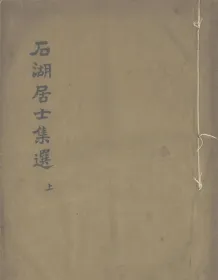 石湖居士集選
上